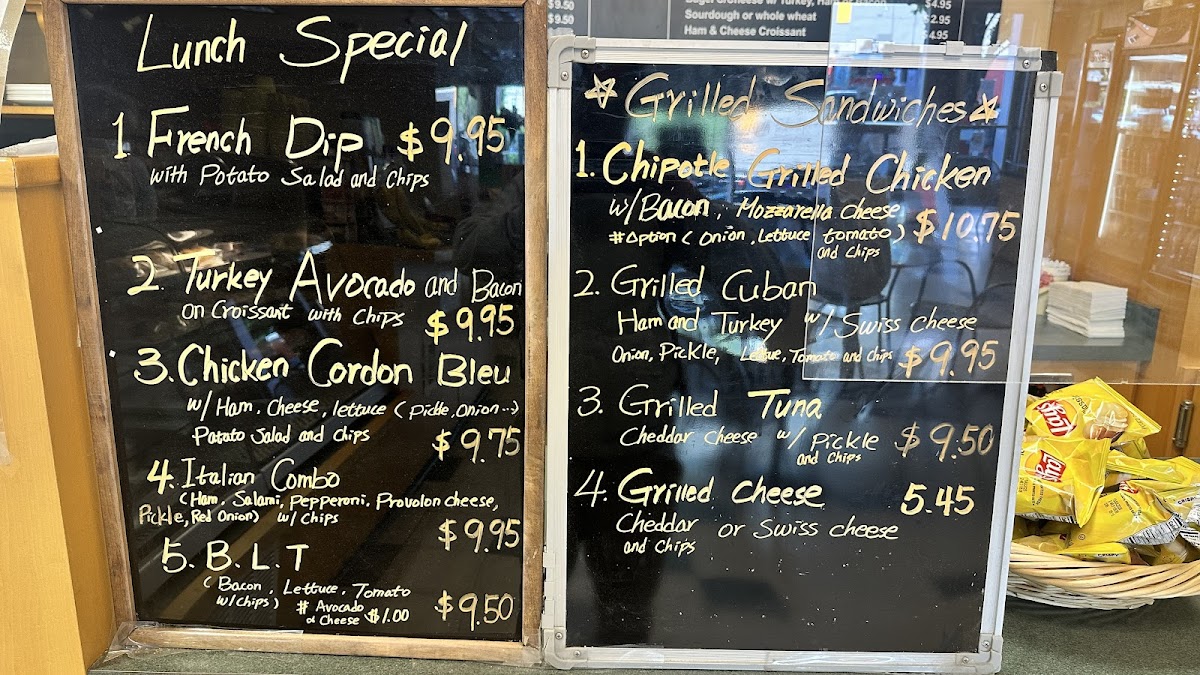 Lunch Special
1 French Dip $9.95
with Potato Salad and Chips
2. Turkey Avocado and Bacon
on Croissant with Chips $9.95
3. Chicken Cordon Bleu
w/ Ham, Cheese, lettuce (Pickle, onion...)
Patato Salad and Chips $9.75
4. Italian Combo
(Ham, Salami, Pepperoni, Provolon cheese,
Pickle, Red Onion) w/ Chips
$9.95
5. B.L.T
(Bacon, Lettuce, Tomato
w/chips) # Avocado
Cheese $1.00 $9.50
$9.50
$9.50
Sourdough or whole wheat
Ham & Cheese Croissant
$4.95
$2.95
$4.95
☆ Grilled Sandwiches ☆
1. Chipotle Grilled Chicken
w/ Bacon, Mozzarella cheese
#Option (Onion, Lettuce tomato) $10.75
and Chips
2. Grilled Cuban
Ham and Turkey w/ Swiss cheese
Onion, Pickle, Tomato and Chips $9.95
3. Grilled Tuna
Cheddar cheese w/ Pickle $9.50
and Chips
4. Grilled Cheese 5.45
Cheddar or Swiss cheese
and Chips
Lay's
Lay's